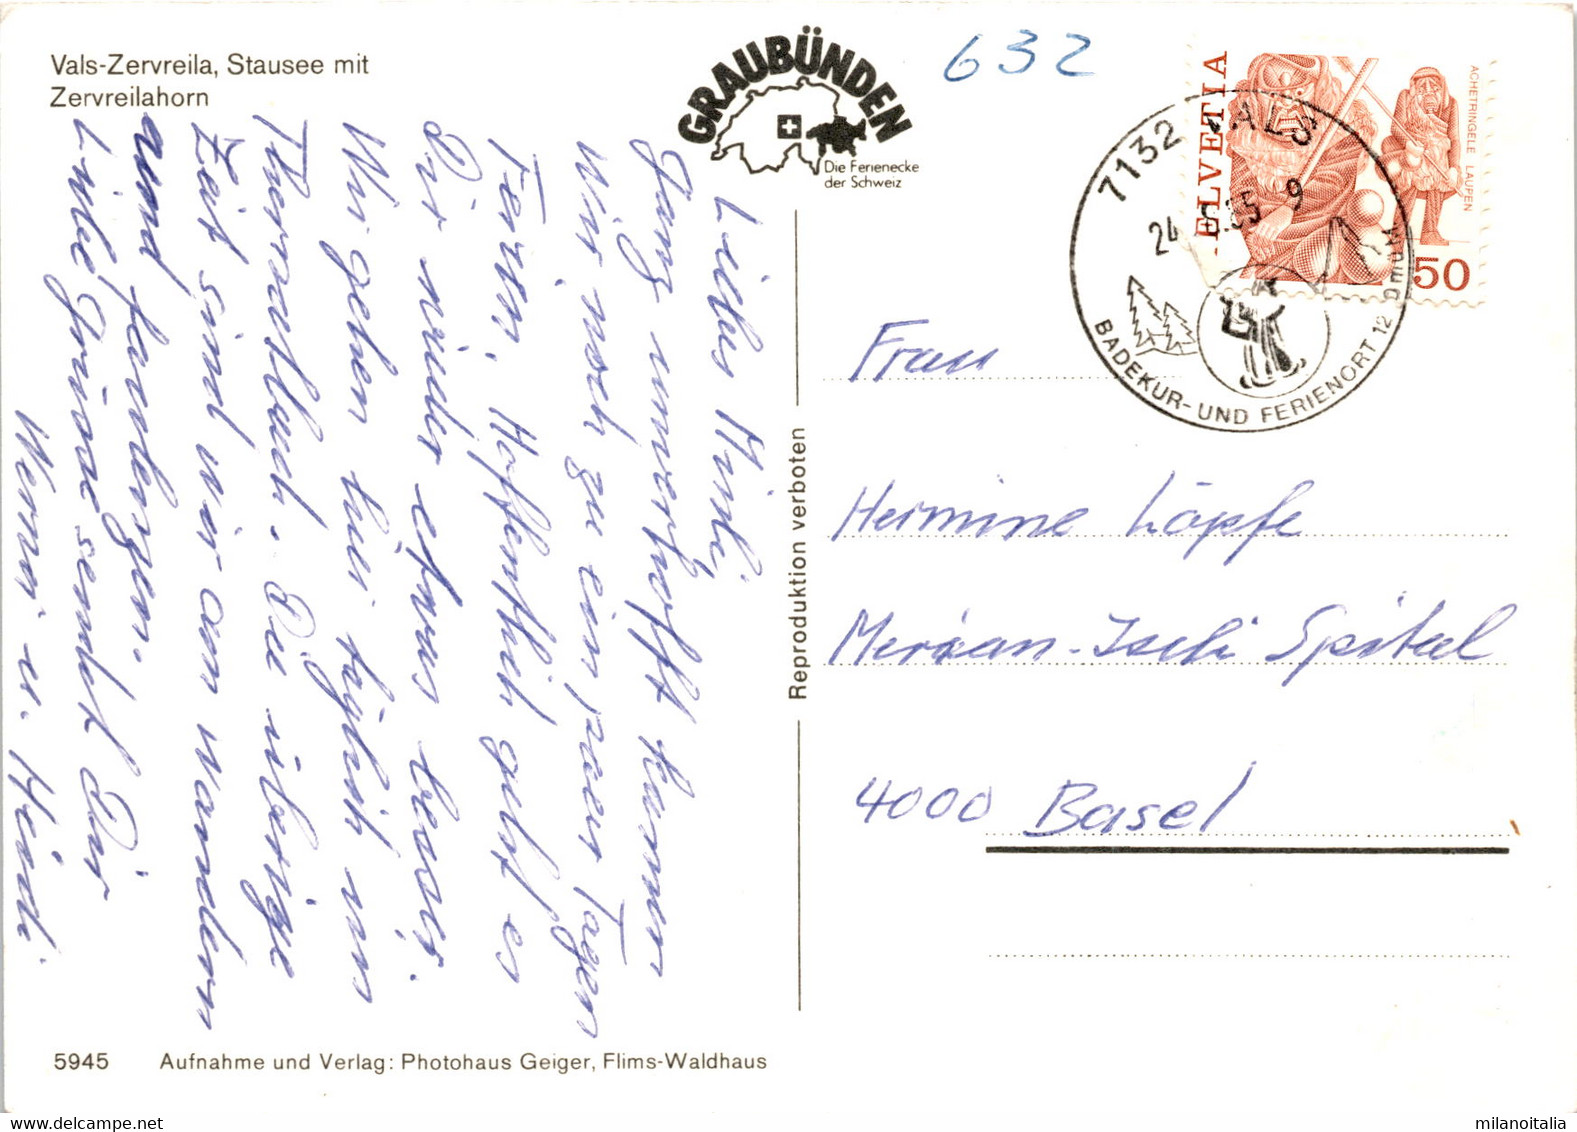 Vals-Zervreila, Stausee mit
Zervreilahorn
GRAUBÜNDEN
Die Ferienecke
der Schweiz
632
HELVETIA
ACHETRINGELE LAUPEN
50
7132 VALS
24. 85 9
BADEKUR- UND FERIENORT 1250müM
Liebes Mindi,
Ganz unverhofft kamen
wir noch zu ein paar Tagen
Ferien. Hoffentlich geht es
Dir wieder etwas besser.
Wir gehen hier täglich ins
Thermalbad. Die übrige
Zeit sind wir am wandern
und faulenzen.
Liebe Grüsse sendet Dir
Werner u. Heidi
Frau
Hermine Löpfe
Merian-Iseli Spital
4000 Basel
Reproduktion verboten
5945 Aufnahme und Verlag: Photohaus Geiger, Flims-Waldhaus
milanoitalia